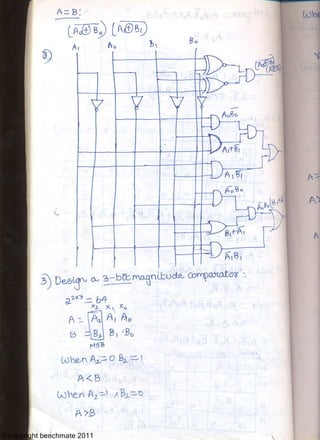 A = B:
(A₀⊕B₀) (A₁⊕B₁)
A₁ A₀ B₁ B₀
A₀B₀
A₁+B₁
A₁B₁
A₀B₀
B₁+A₁
A₁B₁
3) Design a 3-bit magnitude comparator :-
2²ˣ³ = 64
X₂ X₁ X₀
A = A₂ A₁ A₀
B = B₂ B₁ B₀
MSB
When A₂=0 B₂=1
A<B
When A₂=1, B₂=0
A>B
Whe
A=
A>
A
copyright benchmate 2011